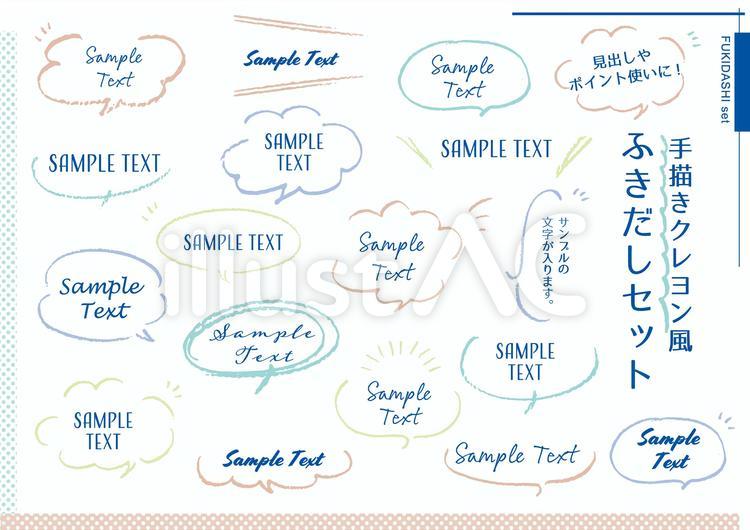 Sample
Text
Sample Text
Sample
Text
見出しや
ポイント使いに！
FUKIDASHI set
SAMPLE TEXT
SAMPLE
TEXT
SAMPLE TEXT
手描きクレヨン風
ふきだしセット
SAMPLE TEXT
Sample
Text
サンプルの
文字が入ります。
Sample
Text
Sample
Text
SAMPLE
TEXT
SAMPLE
TEXT
Sample
Text
Sample Text
Sample Text
Sample
Text
illustAC